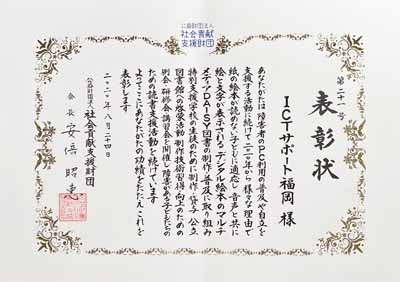 公益財団法人
社会貢献
支援財団
第二十一号
表彰状
ICTサポート福岡 様
あなたがたは障害者のPC利用の普及や自立を
支援する活動に続けて二〇一〇年から様々な理由で
紙の絵本が読めない子どもに適応し音声と共に
絵と文字が表示されるデジタル絵本のマルチ
メディアDAISY図書の制作・普及に取り組み
特別支援学校の生徒のために制作・貸与 公立
図書館への啓蒙活動 制作技術習得・向上のための
例会・研修会・講習会を開催し障害がある子どもたちの
ための読書支援活動を続けています
よってここにあなたがたの功績をたたえこれを
表彰します
二〇二〇年八月二四日
公益財団法人 社会貢献支援財団
会長 安倍昭恵